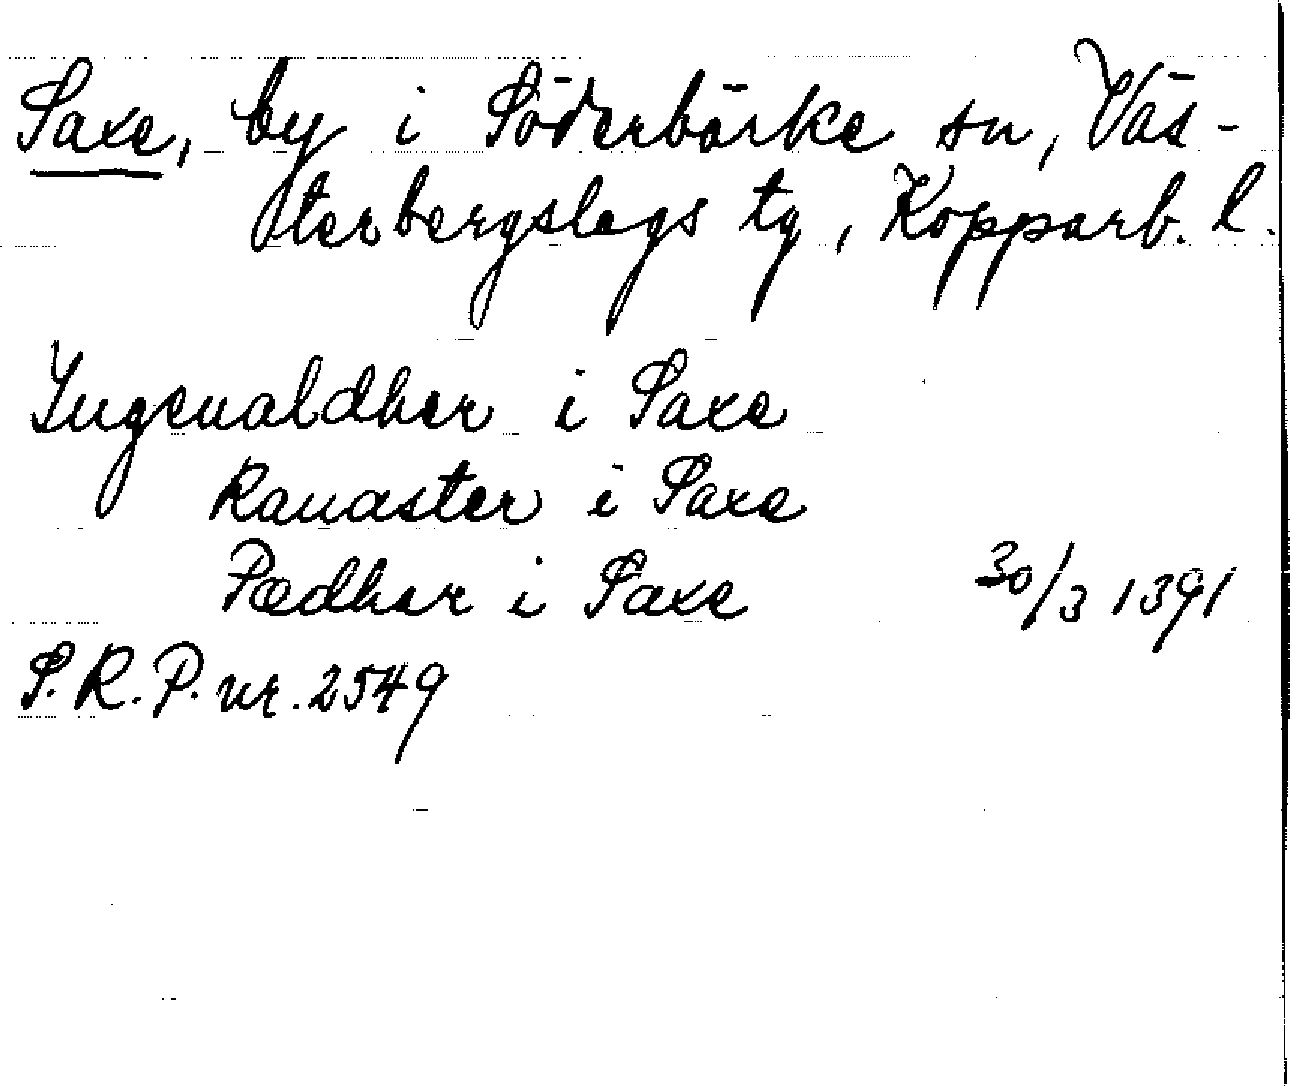 Saxe, by i Söderbärke sn, Väs-
terbergslags tg, Kopparb. l.
Ingeualdher i Saxe
Ranaster i Saxe
Pædhar i Saxe 30/3 1391
S.R.P. nr. 2549